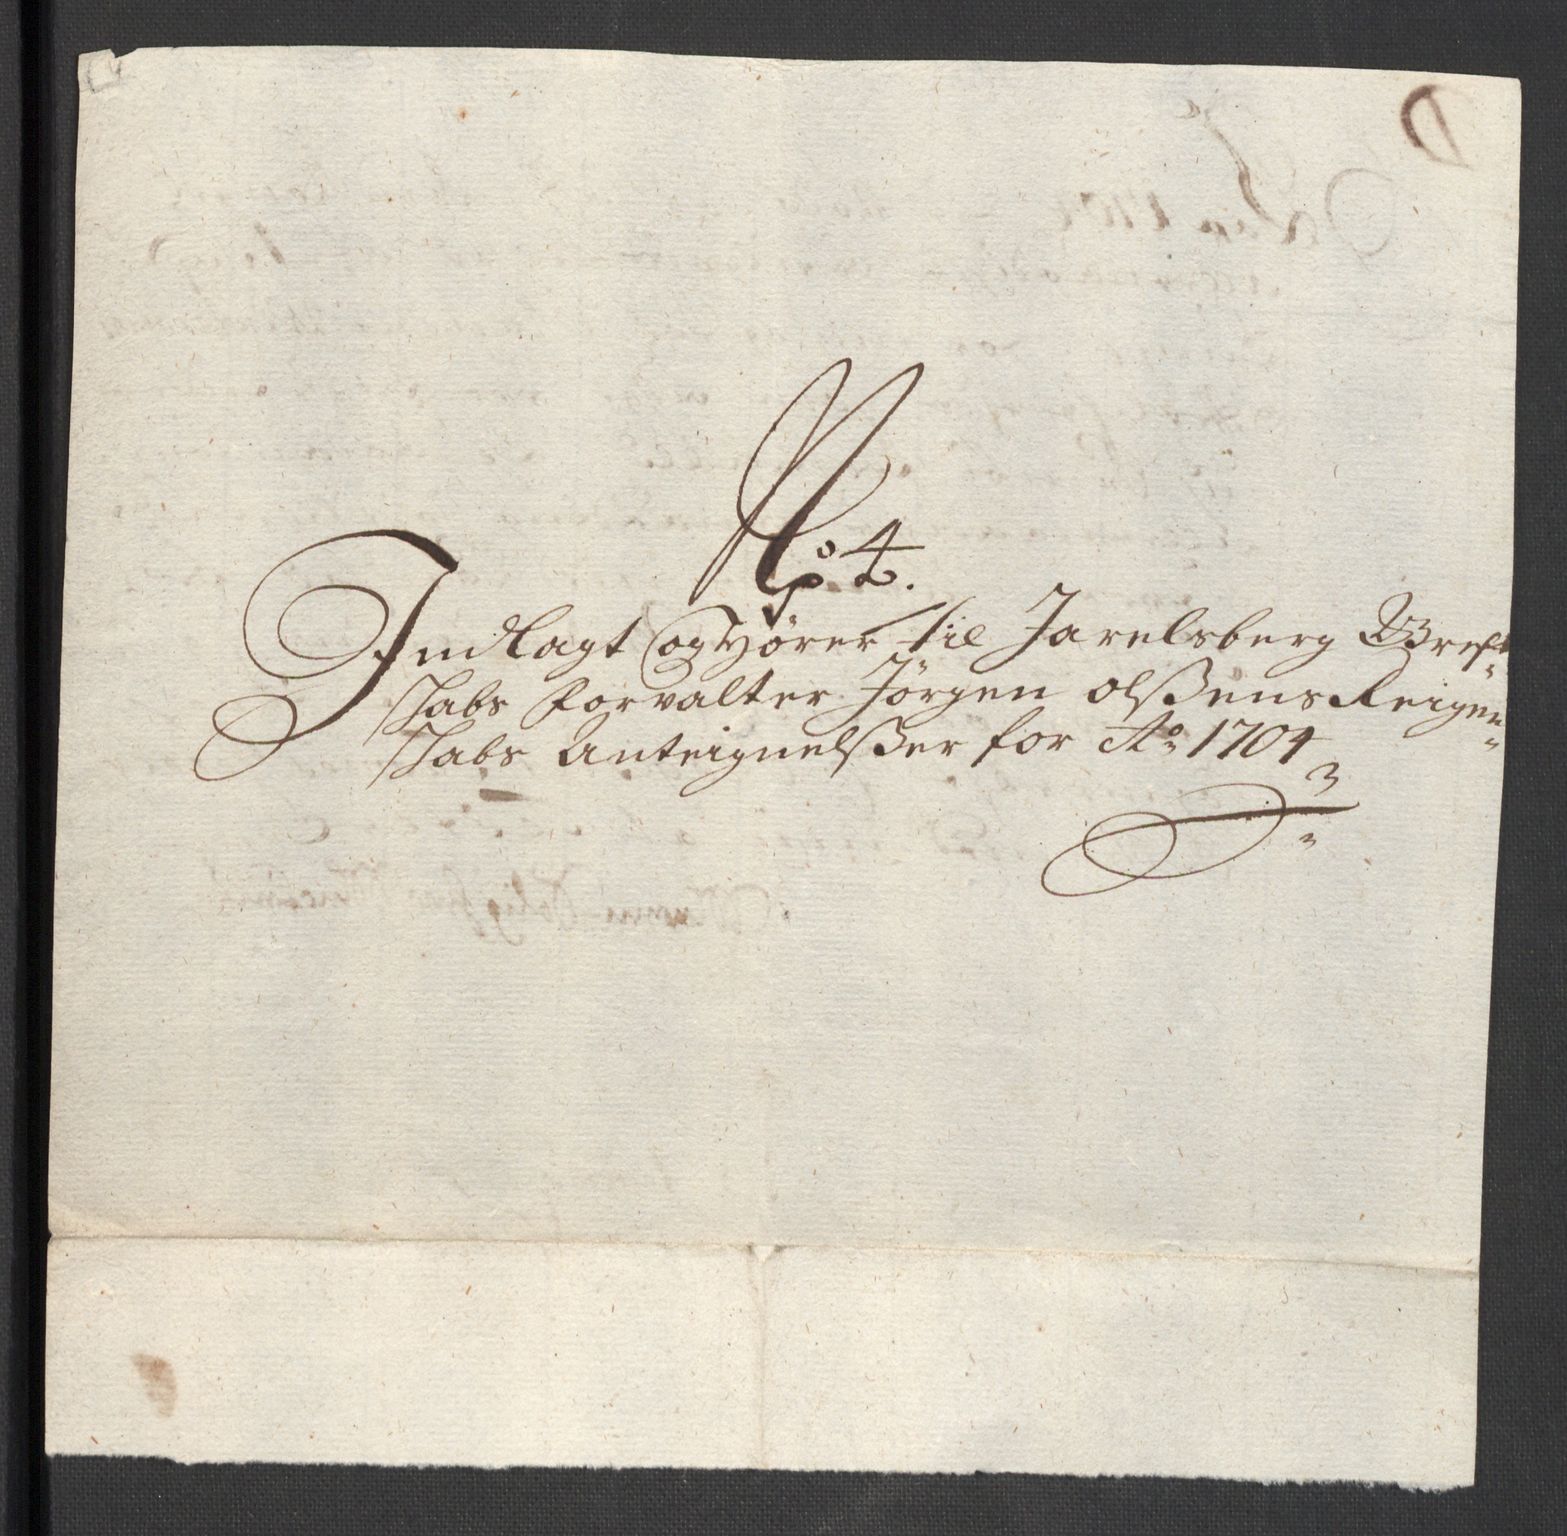 No 4.
Indlagt og Hører til Jarelsberg Gref-
schabs Forvalter Jörgen Olßens Reigen-
schabs Anteignelßer for Ao 1704